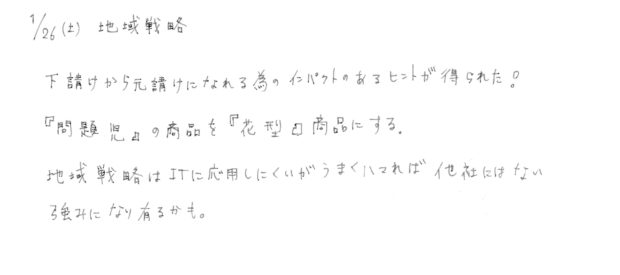 1/26(土) 地域戦略
下請けから元請けになれる為のインパクトのあるヒントが得られた!
『問題児』の商品を『花型』商品にする.
地域戦略はITに応用しにくいがうまくハマれば他社にはない
強みになり有るかも。